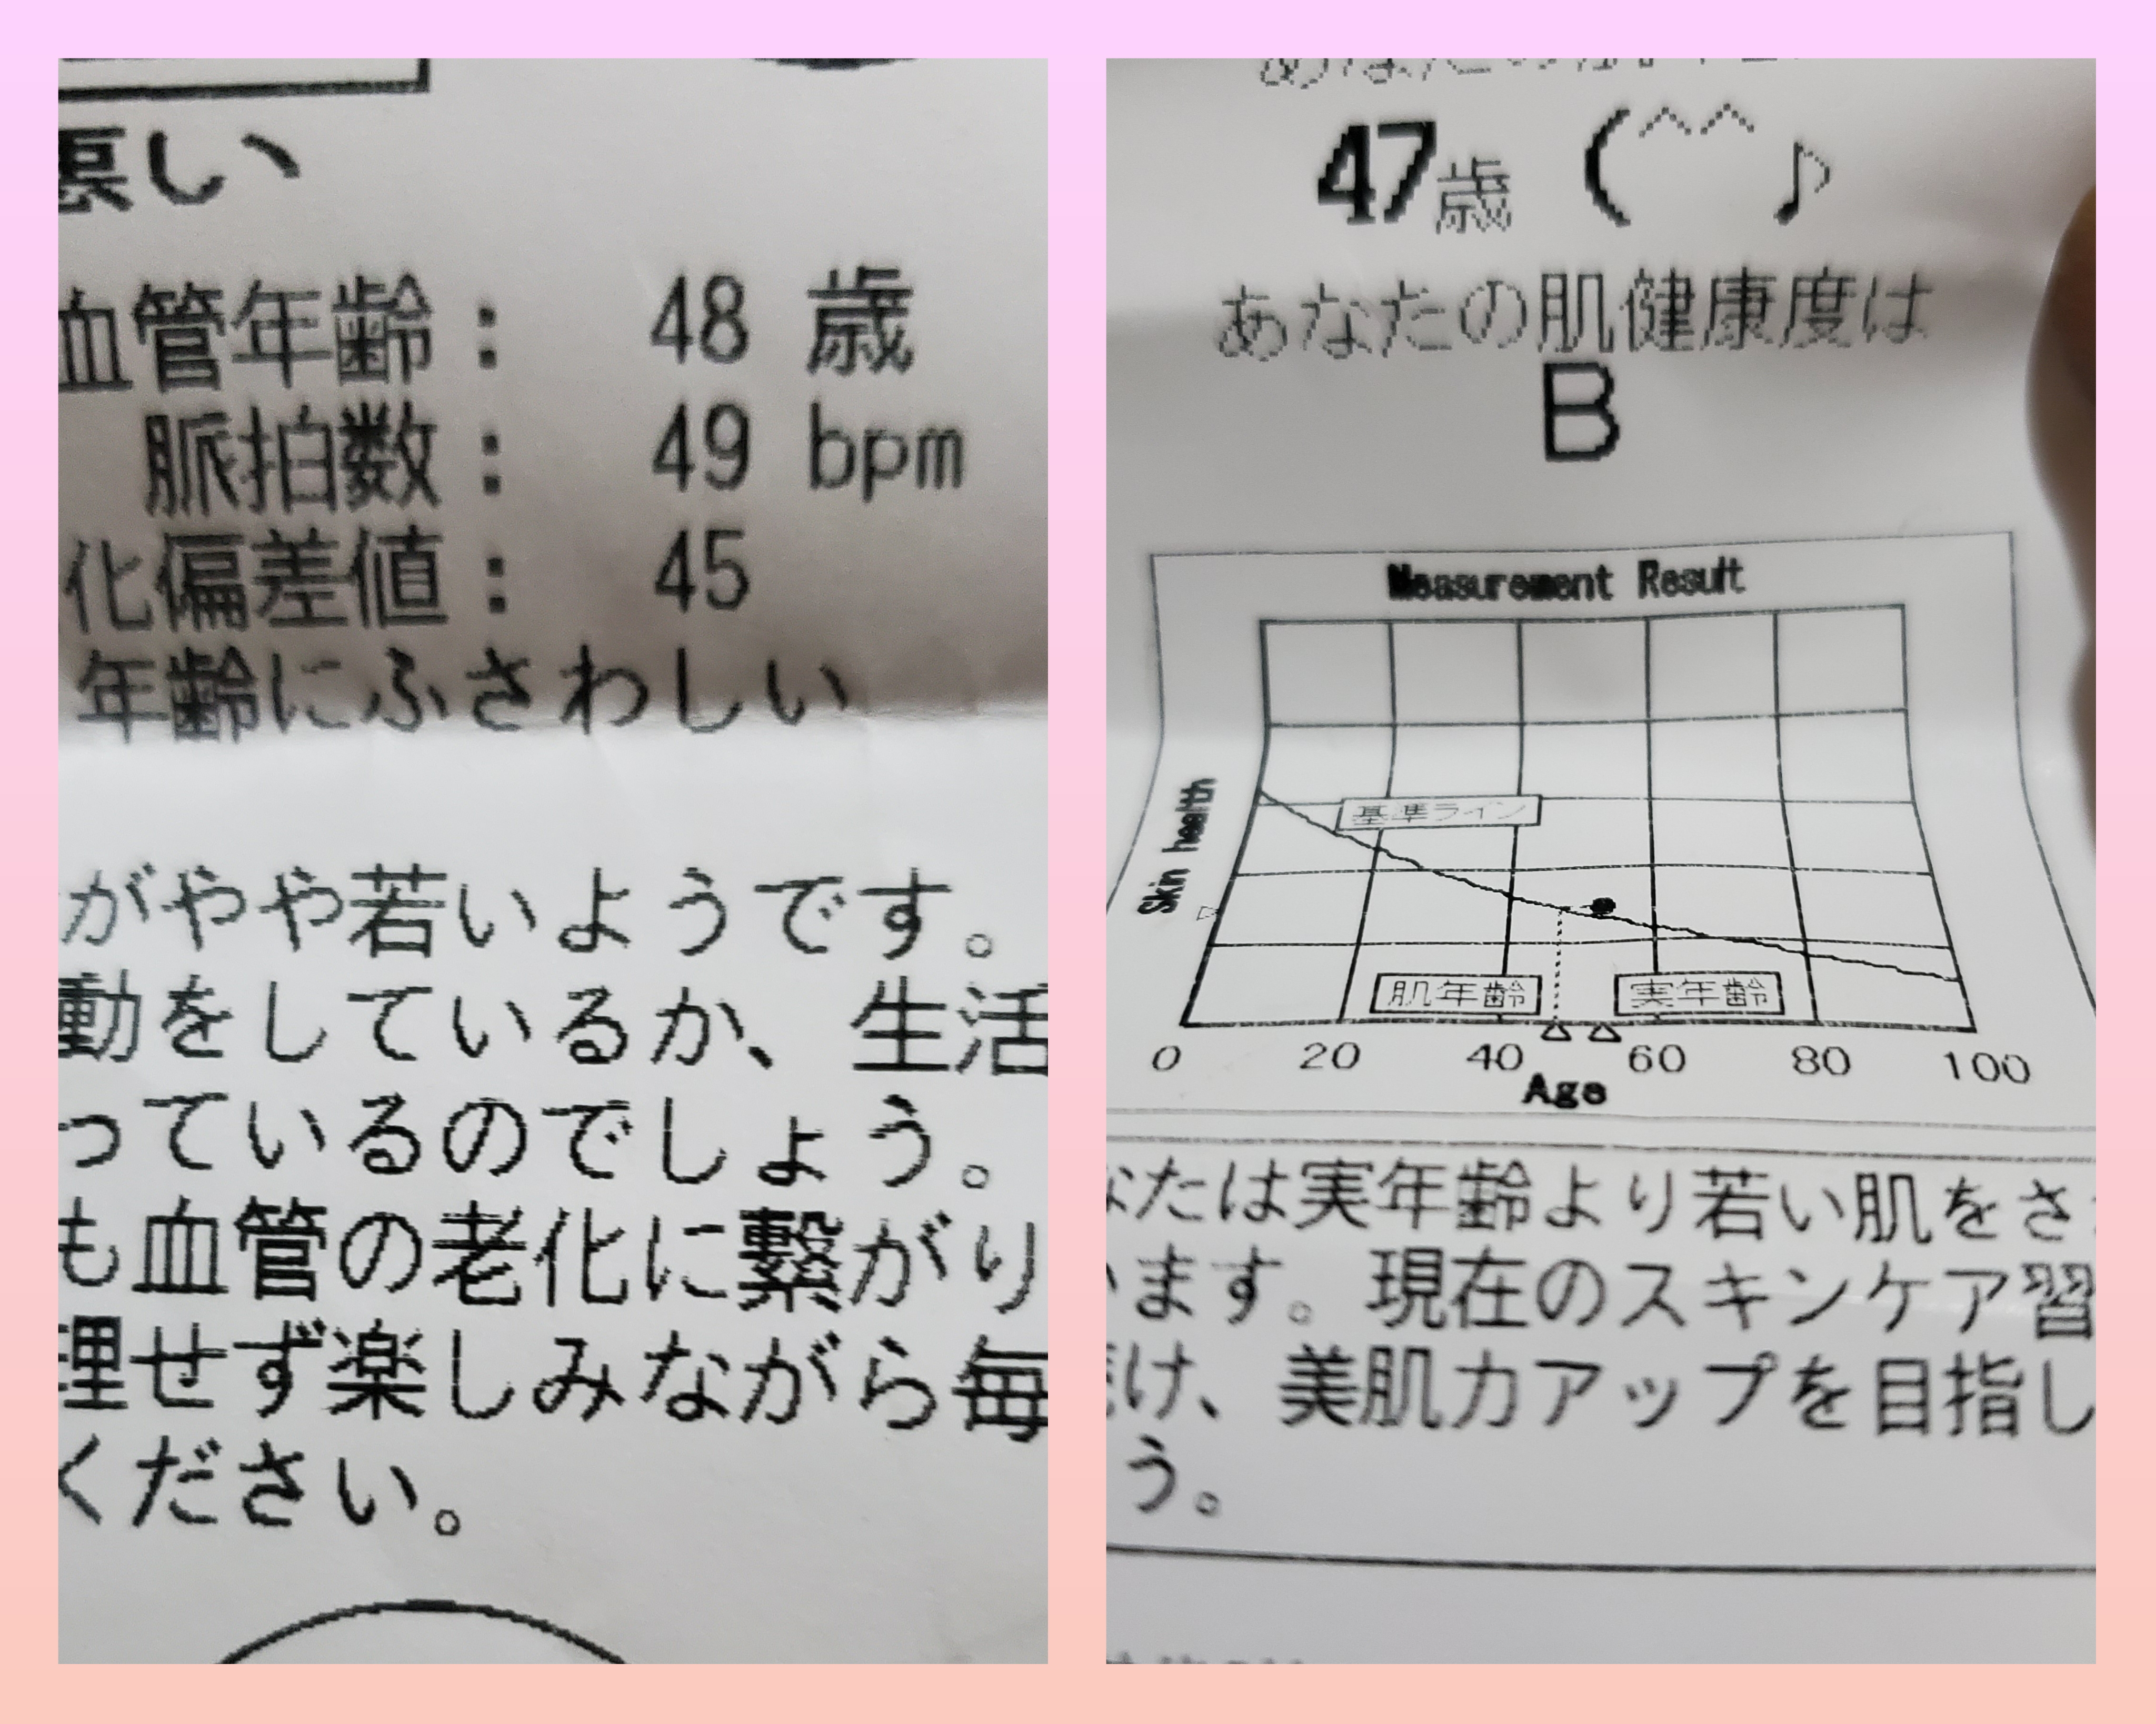 悪い
血管年齢： 48 歳
脈拍数： 49 bpm
化偏差値： 45
年齢にふさわしい
がやや若いようです。
動をしているか、生活
っているのでしょう。
も血管の老化に繋がり
理せず楽しみながら毎
ください。
47歳 (^^♪
あなたの肌健康度は
B
Measurement Result
基準ライン
Skin health
肌年齢 実年齢
0 20 40 60 80 100
Age
なたは実年齢より若い肌をさ
います。現在のスキンケア習
け、美肌力アップを目指し
う。